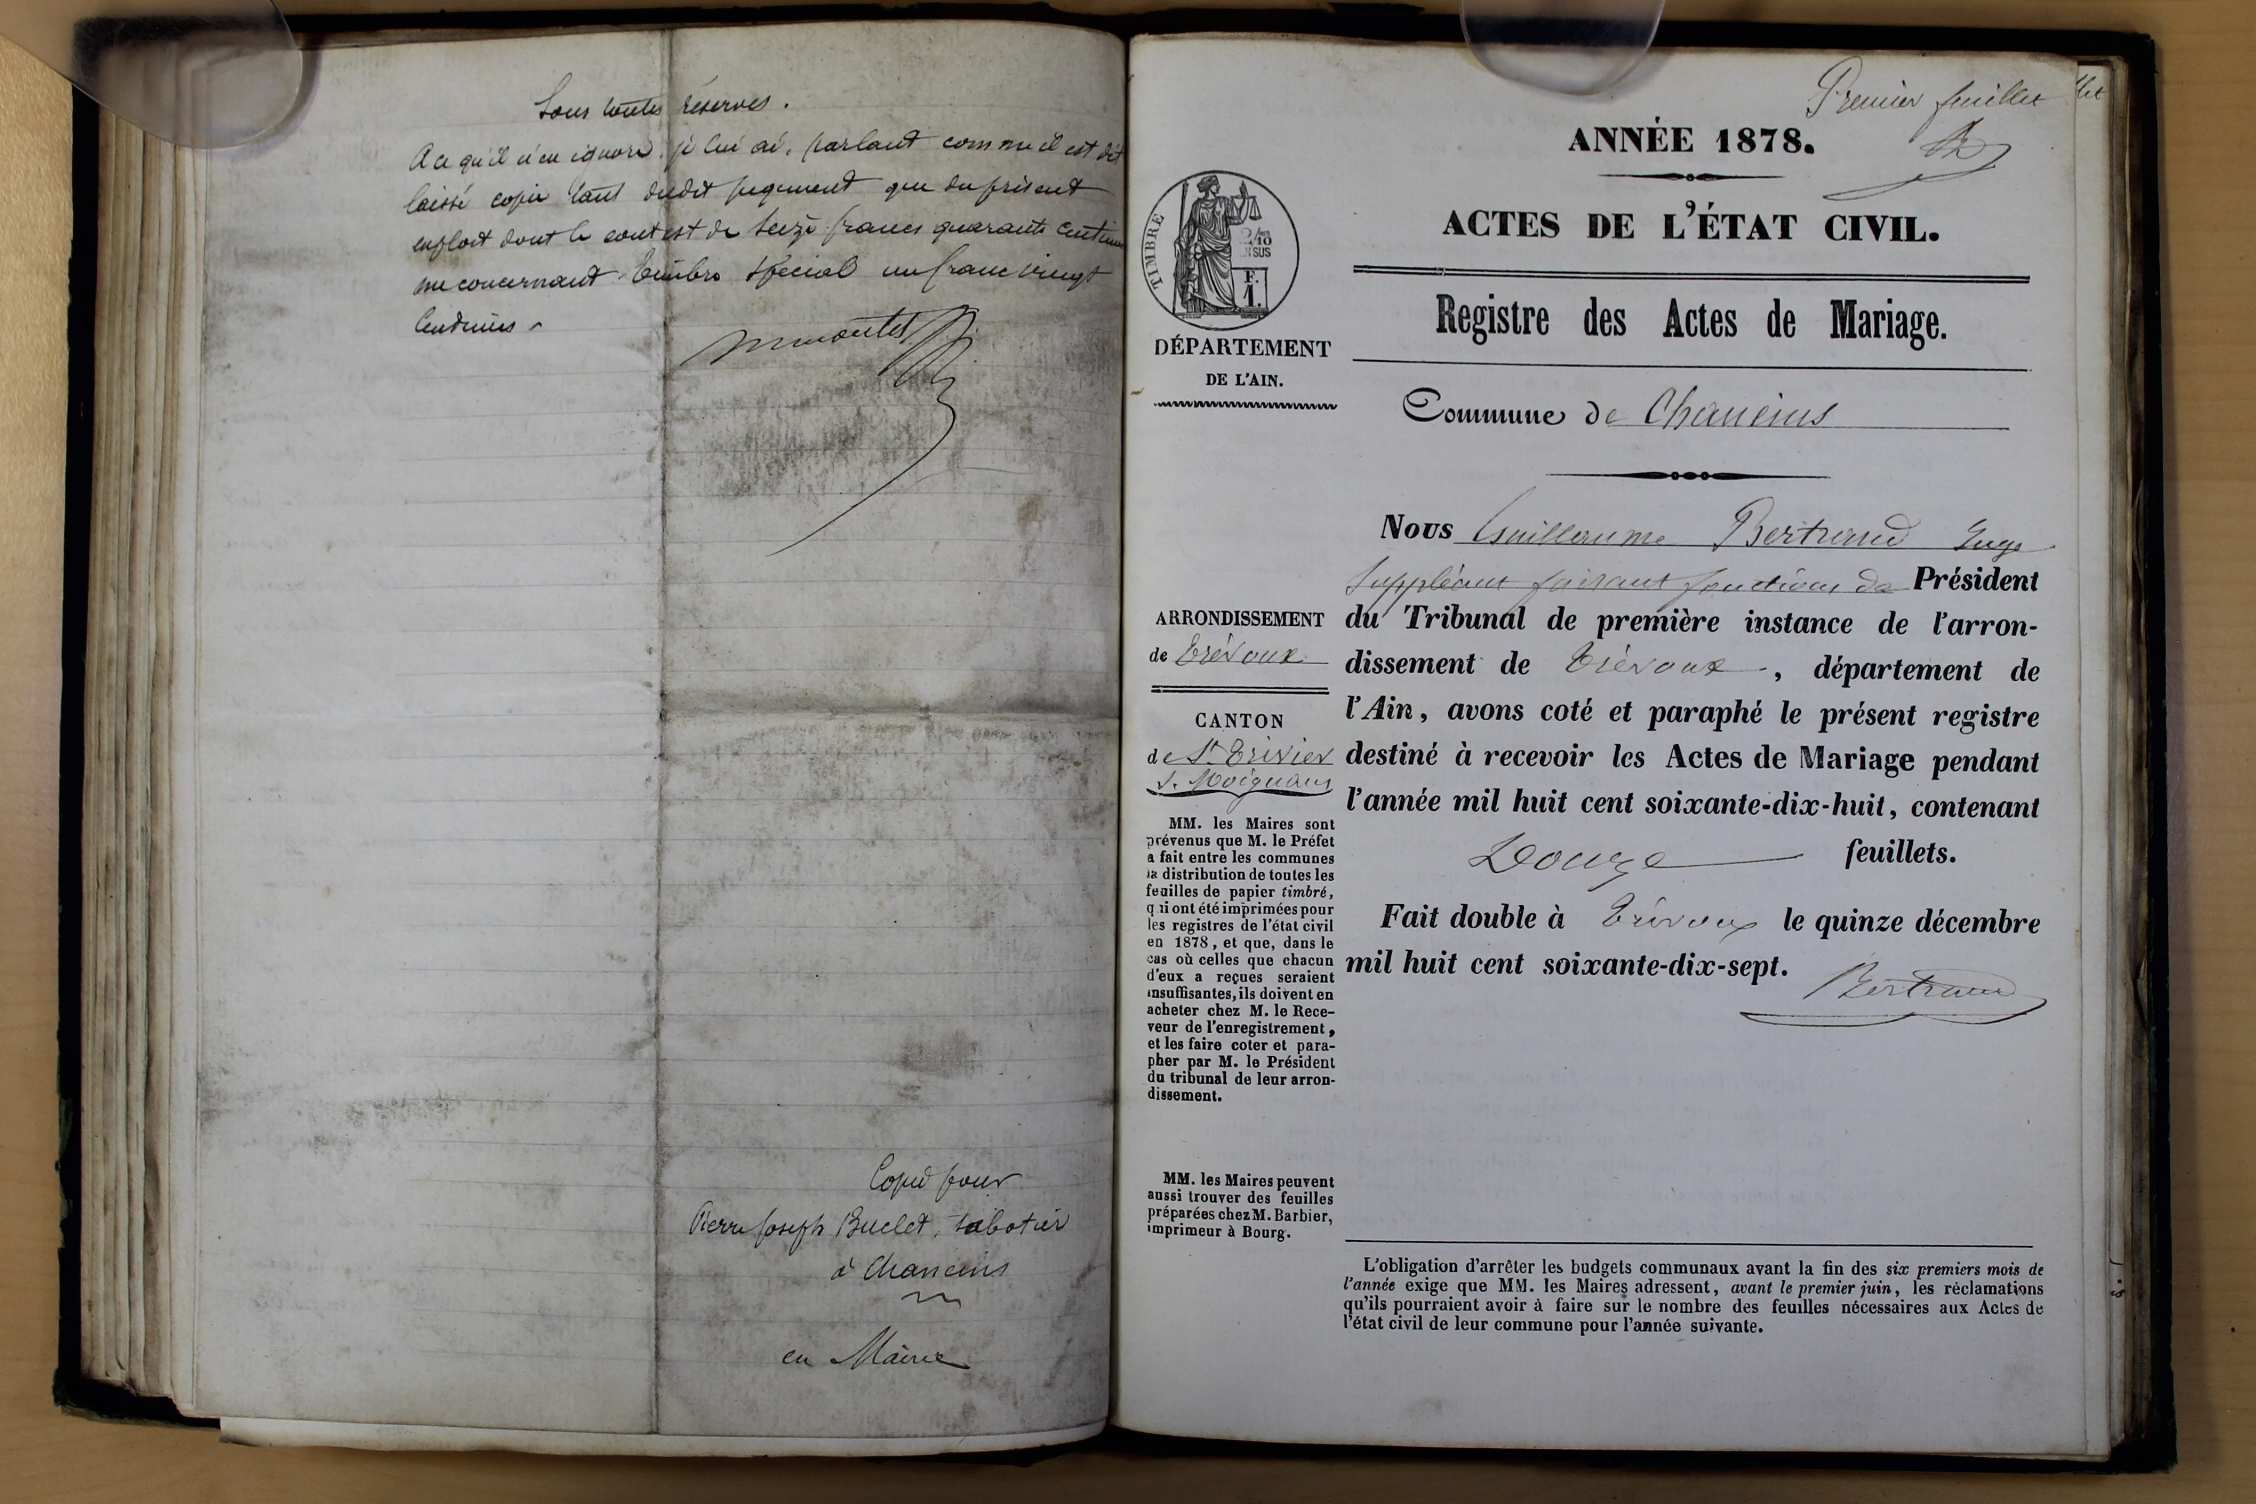 Sous toutes réserves.
A ce qu'il n'en ignore, je lui ai, parlant comme il est dit
laissé copie tant dudit jugement que du présent
exploit dont le cout est de seize francs quarante centimes
me concernant. Timbre spécial un franc vingt
Centimes.
Copie pour
Pierre Joseph Buclet, sabotier
à Chaneins
en Mairie
Premier feuillet
ANNÉE 1878.
ACTES DE L'ÉTAT CIVIL.
Registre des Actes de Mariage.
Commune de Chaneins
TIMBRE
2/10
EN SUS
F.
1.
DÉPARTEMENT
DE L'AIN.
ARRONDISSEMENT
de Trévoux
CANTON
de St Trivier
s. Moignans
MM. les Maires sont
prévenus que M. le Préfet
a fait entre les communes
la distribution de toutes les
feuilles de papier timbré,
qui ont été imprimées pour
les registres de l'état civil
en 1878, et que, dans le
cas où celles que chacun
d'eux a reçues seraient
insuffisantes, ils doivent en
acheter chez M. le Rece-
veur de l'enregistrement,
et les faire coter et para-
pher par M. le Président
du tribunal de leur arron-
dissement.
MM. les Maires peuvent
aussi trouver des feuilles
préparées chez M. Barbier,
imprimeur à Bourg.
Nous Guillaume Bertrand Juge
Suppléant faisant fonctions de Président
du Tribunal de première instance de l'arron-
dissement de Trévoux, département de
l'Ain, avons coté et paraphé le présent registre
destiné à recevoir les Actes de Mariage pendant
l'année mil huit cent soixante-dix-huit, contenant
Douze feuillets.
Fait double à Trévoux le quinze décembre
mil huit cent soixante-dix-sept.
Bertrand
L'obligation d'arrêter les budgets communaux avant la fin des six premiers mois de
l'année exige que MM. les Maires adressent, avant le premier juin, les réclamations
qu'ils pourraient avoir à faire sur le nombre des feuilles nécessaires aux Actes de
l'état civil de leur commune pour l'année suivante.